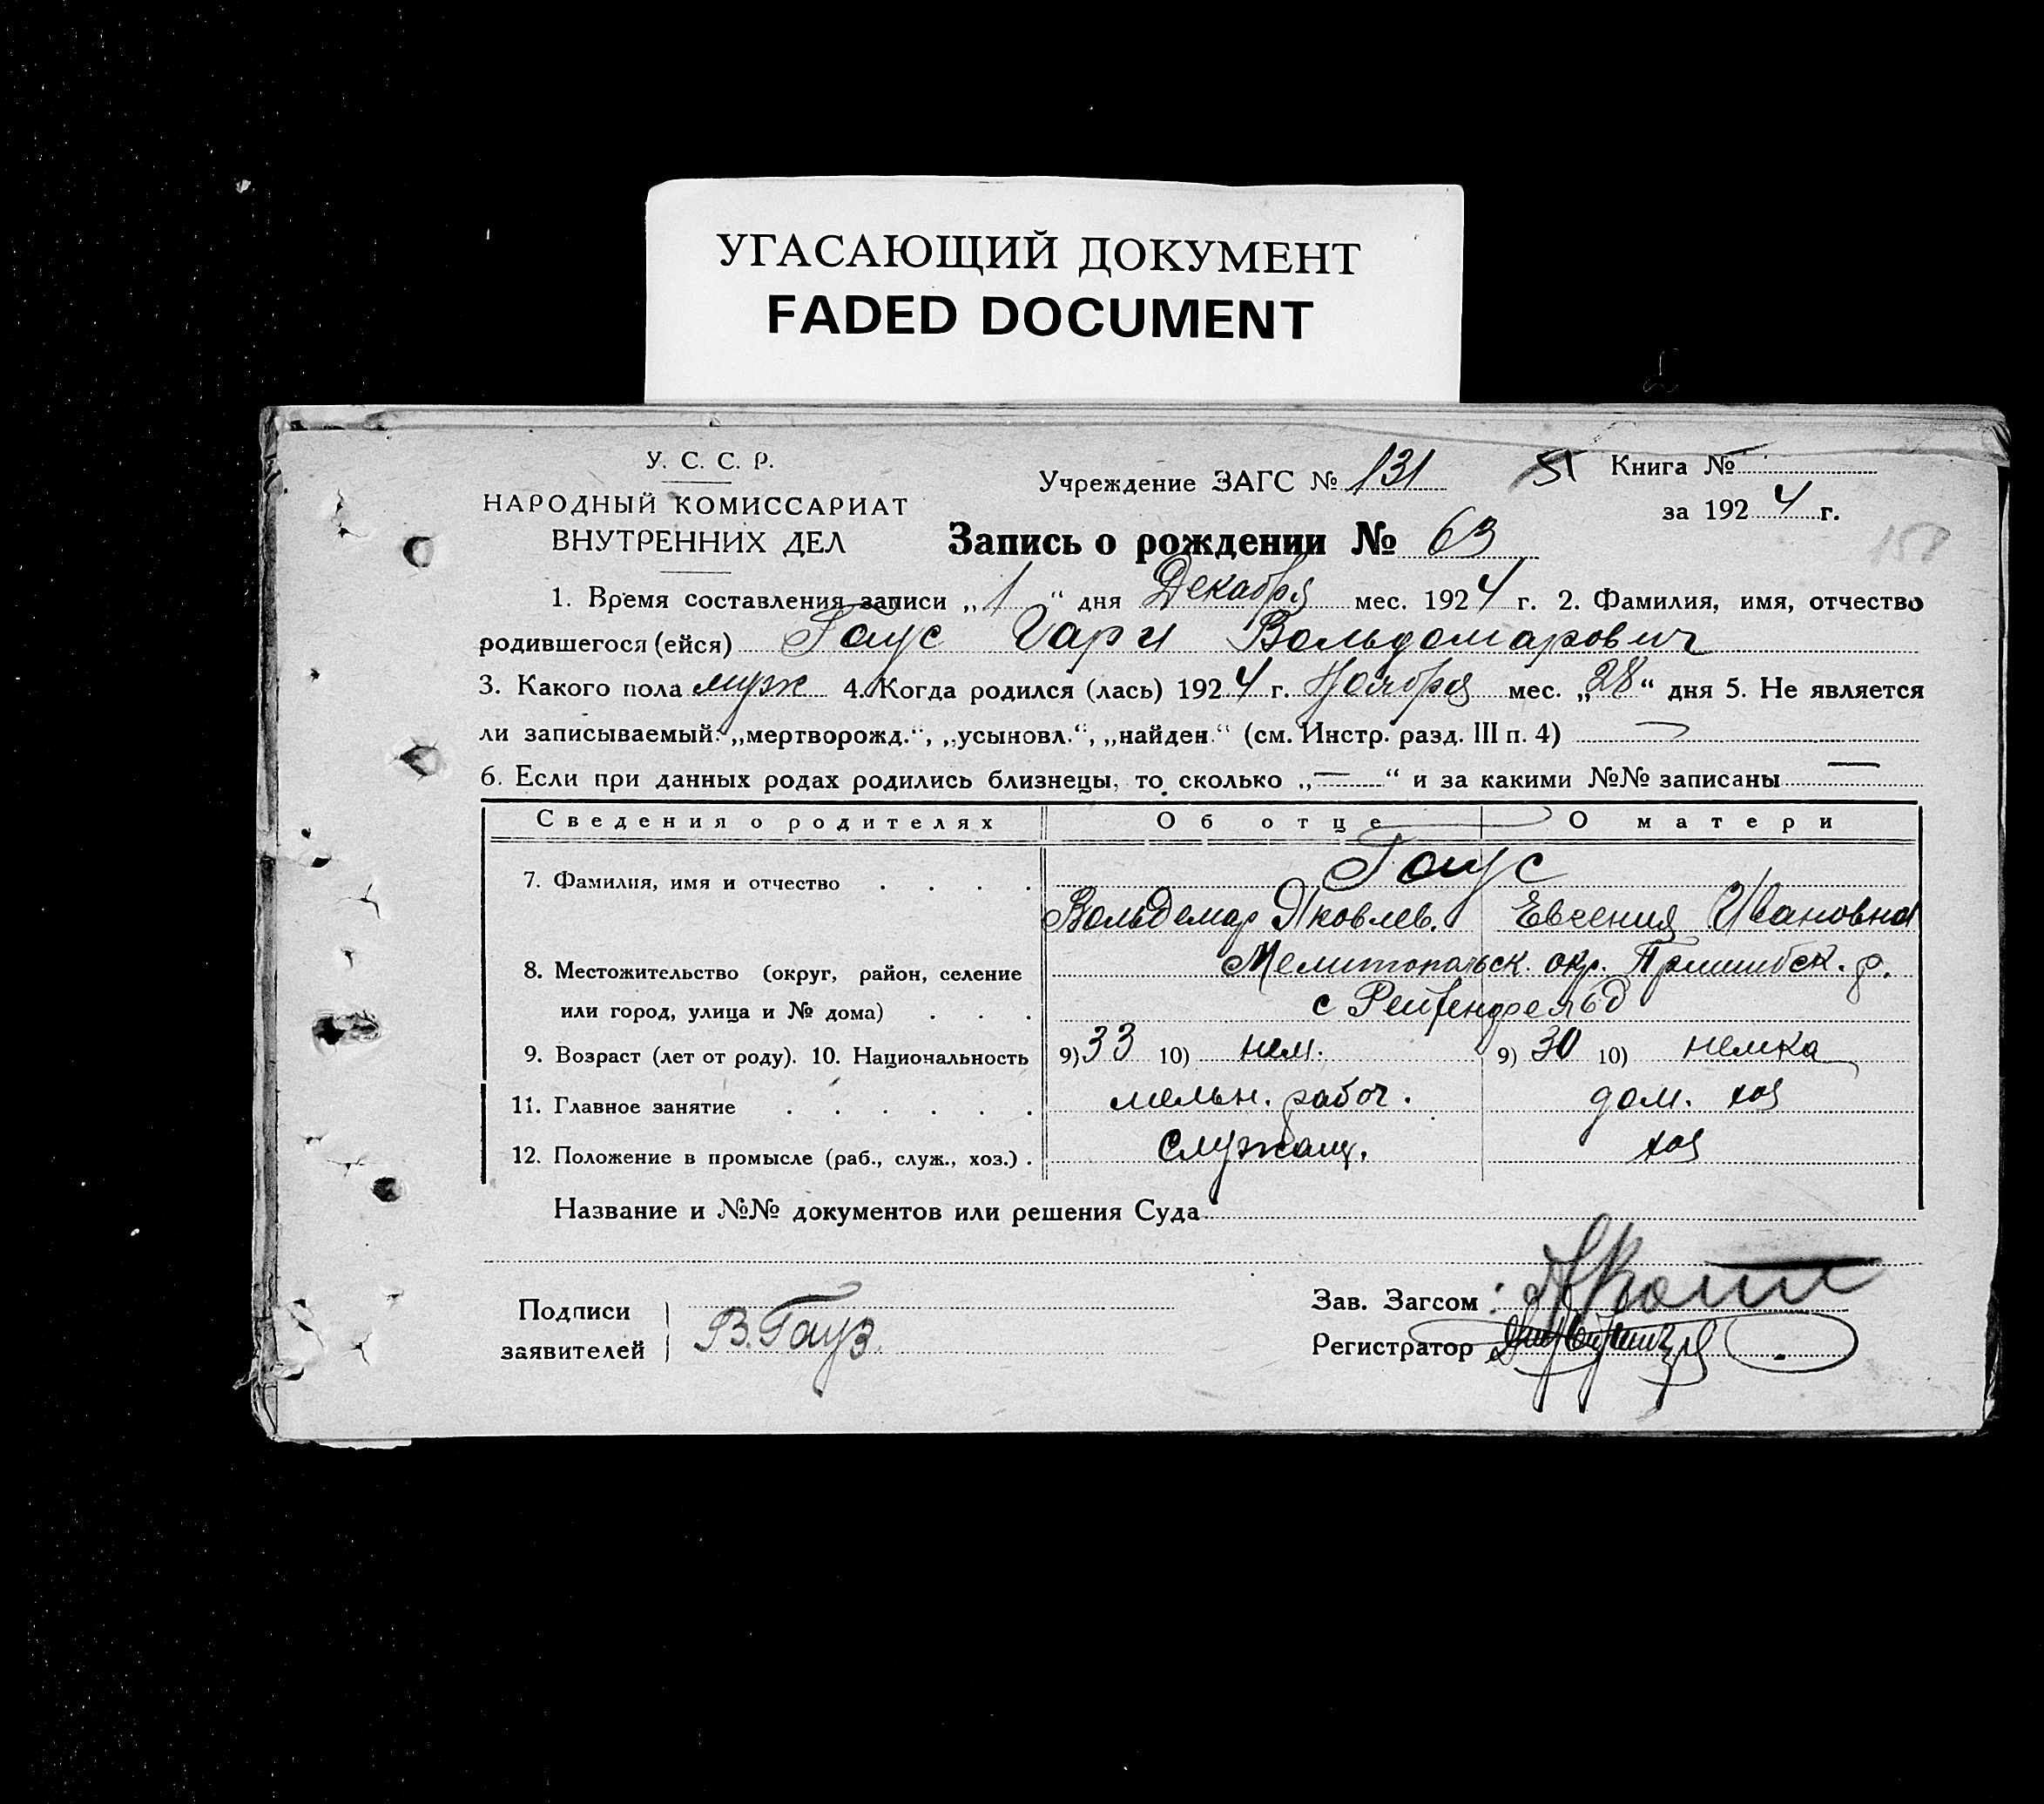 УГАСАЮЩИЙ ДОКУМЕНТ
FADED DOCUMENT
У. С. С. Р.
НАРОДНЫЙ КОМИССАРИАТ
ВНУТРЕННИХ ДЕЛ
Учреждение ЗАГС № 131
51 Книга №
за 1924 г.
158
Запись о рождении № 63
1. Время составления записи „1“ дня Декабря мес. 1924 г. 2. Фамилия, имя, отчество
родившегося (ейся) Гаус Гари Вольдомарович
3. Какого пола муж 4. Когда родился (лась) 1924 г. Ноября мес. „28“ дня 5. Не является
ли записываемый: „мертворожд.“, „усыновл.“, „найден.“ (см. Инстр. разд. III п. 4) —
6. Если при данных родах родились близнецы, то сколько „—“ и за какими №№ записаны —
Сведения о родителях Об отце О матери
7. Фамилия, имя и отчество . . . . Гаус
Вольдемар Яковлев. Евгения Ивановна
8. Местожительство (округ, район, селение Мелитопольск. окр. Пришибск. р.
или город, улица и № дома) . . . с Рейхенфельд
9. Возраст (лет от роду). 10. Национальность 9) 33 10) нем. 9) 30 10) немка
11. Главное занятие . . . . . . мельн. рабоч. дом. хоз
12. Положение в промысле (раб., служ., хоз.) . служащ. хоз
Название и №№ документов или решения Суда
Подписи
заявителей В. Гауз
Зав. Загсом :
Регистратор